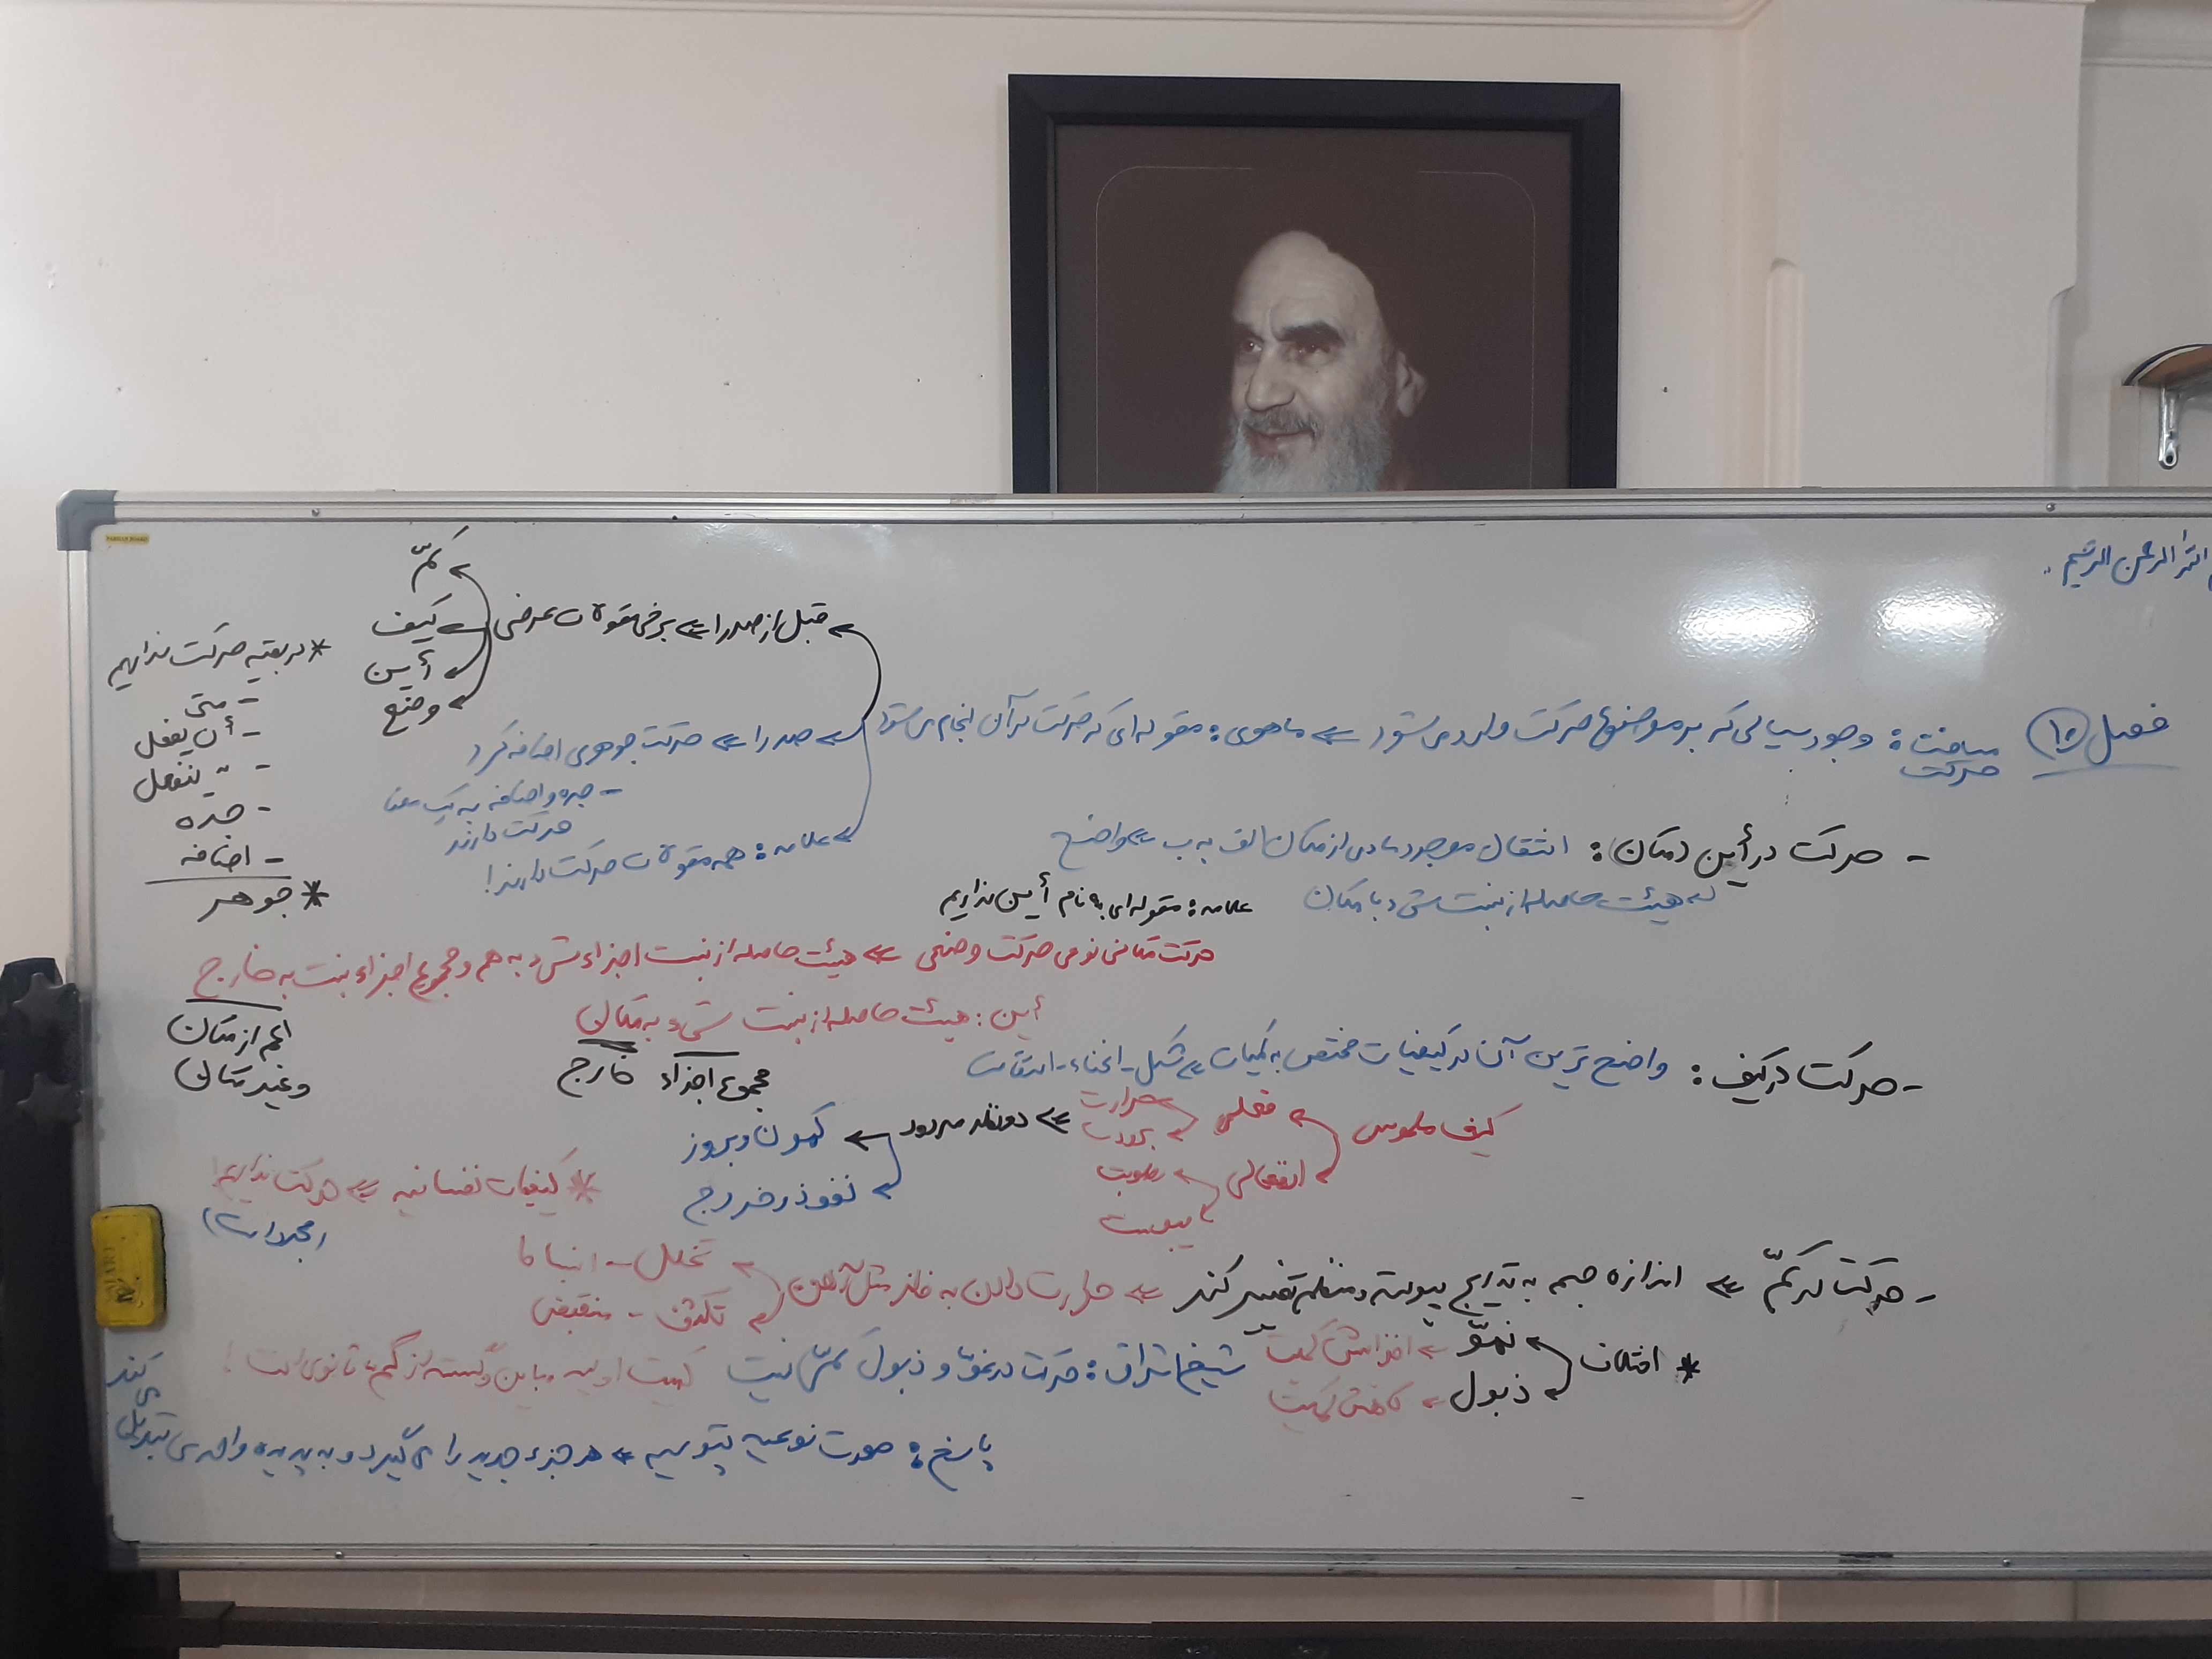 الله الرحمن الرحیم
فصل ۱۰
مسافت حرکت: وجود سیالی که بر موضوع حرکت وارد می‌شود ⇐ ماهوی: مقوله‌ای که حرکت در آن انجام می‌شود
قبل از صدرا ⇐ برخی مقولات عرضی
کمّ
کیف
أین
وضع
صدرا ⇐ حرکت جوهری اضافه کرد
- جده و اضافه به یک معنا حرکت دارند
علامه: همه مقولات حرکت دارند!
* در بقیه حرکت نداریم
- متی
- أن یفعل
- " ینفعل
- جده
- اضافه
* جوهر
- حرکت در أین (مکان): انتقال موجود مادی از مکان الف به ب ⇐ واضح
هیئت حاصله از نسبت شیء با مکان
علامه: مقوله‌ای به نام أین نداریم
حرکت مکانی نوعی حرکت وضعی ⇐ هیئت حاصله از نسبت اجزاء شیء به هم و مجموع اجزاء نسبت به خارج
اعم از مکان و غیر مکان
أین: هیئت حاصله از نسبت شیء به مکان
مجموع اجزاء خارج
- حرکت در کیف: واضح ترین آن در کیفیات مختص به کمیات ⇐ شکل - انحناء - استقامت
کیف ملموس
فعلی
حرارت
برودت
انفعالی
رطوبت
یبوست
⇐ دو نظر مردود
کمون و بروز
نفوذ و خروج
* کیفیات نفسانیه ⇐ حرکت نداریم!
(مجردات)
- حرکت در کمّ ⇐ اندازه جسم به تدریج پیوسته و منظم تغییر کند ⇐ حرارت دادن به فلز مثل آهن
تخلل - انبساط
تکثف - منقبض
* اختلاف
نموّ ← افزایش کمیت
ذبول ← کاهش کمیت
شیخ اشراق: حرکت در نموّ و ذبول کمّی نیست کمیت اولیه مباین و گسسته از کمّ ثانوی است!
پاسخ: صورت نوعیه پتوسیه ⇐ هر جزء جدید را می‌گیرد و به پدیده واحدی تبدیل می‌کند